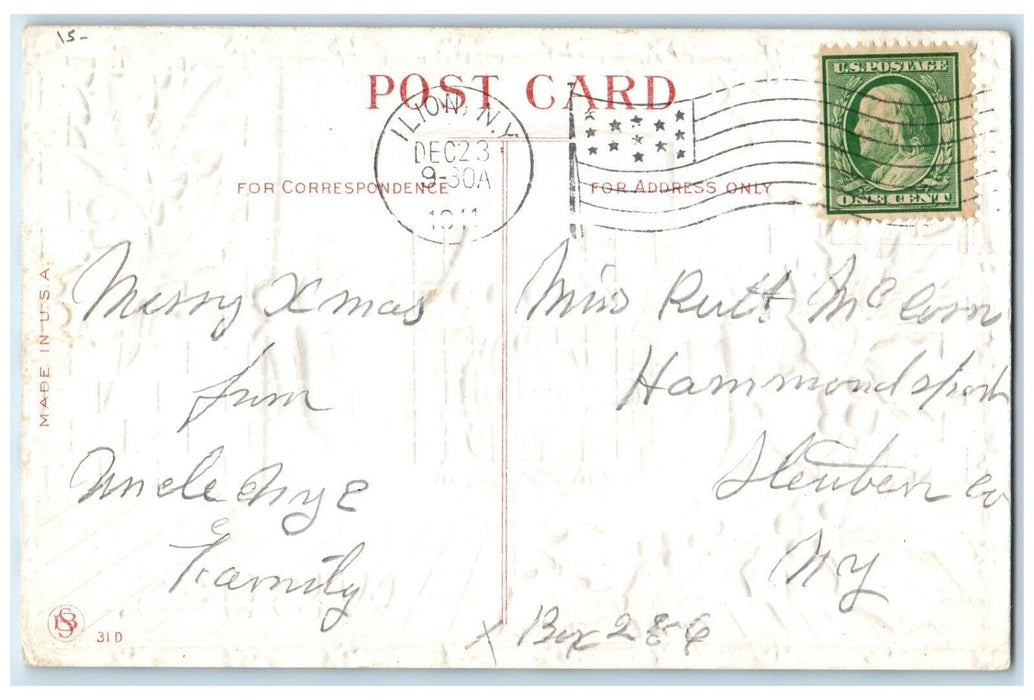 15-
POST CARD
ILION, N.Y.
DEC 23
9-30A
1911
U.S. POSTAGE
ONE CENT
FOR CORRESPONDENCE
FOR ADDRESS ONLY
MADE IN U.S.A.
Merry Xmas
from
Uncle Nye &
Family
Miss Ruth Mc
Hammondsport
Steuben Co
NY
X Box 286
31D